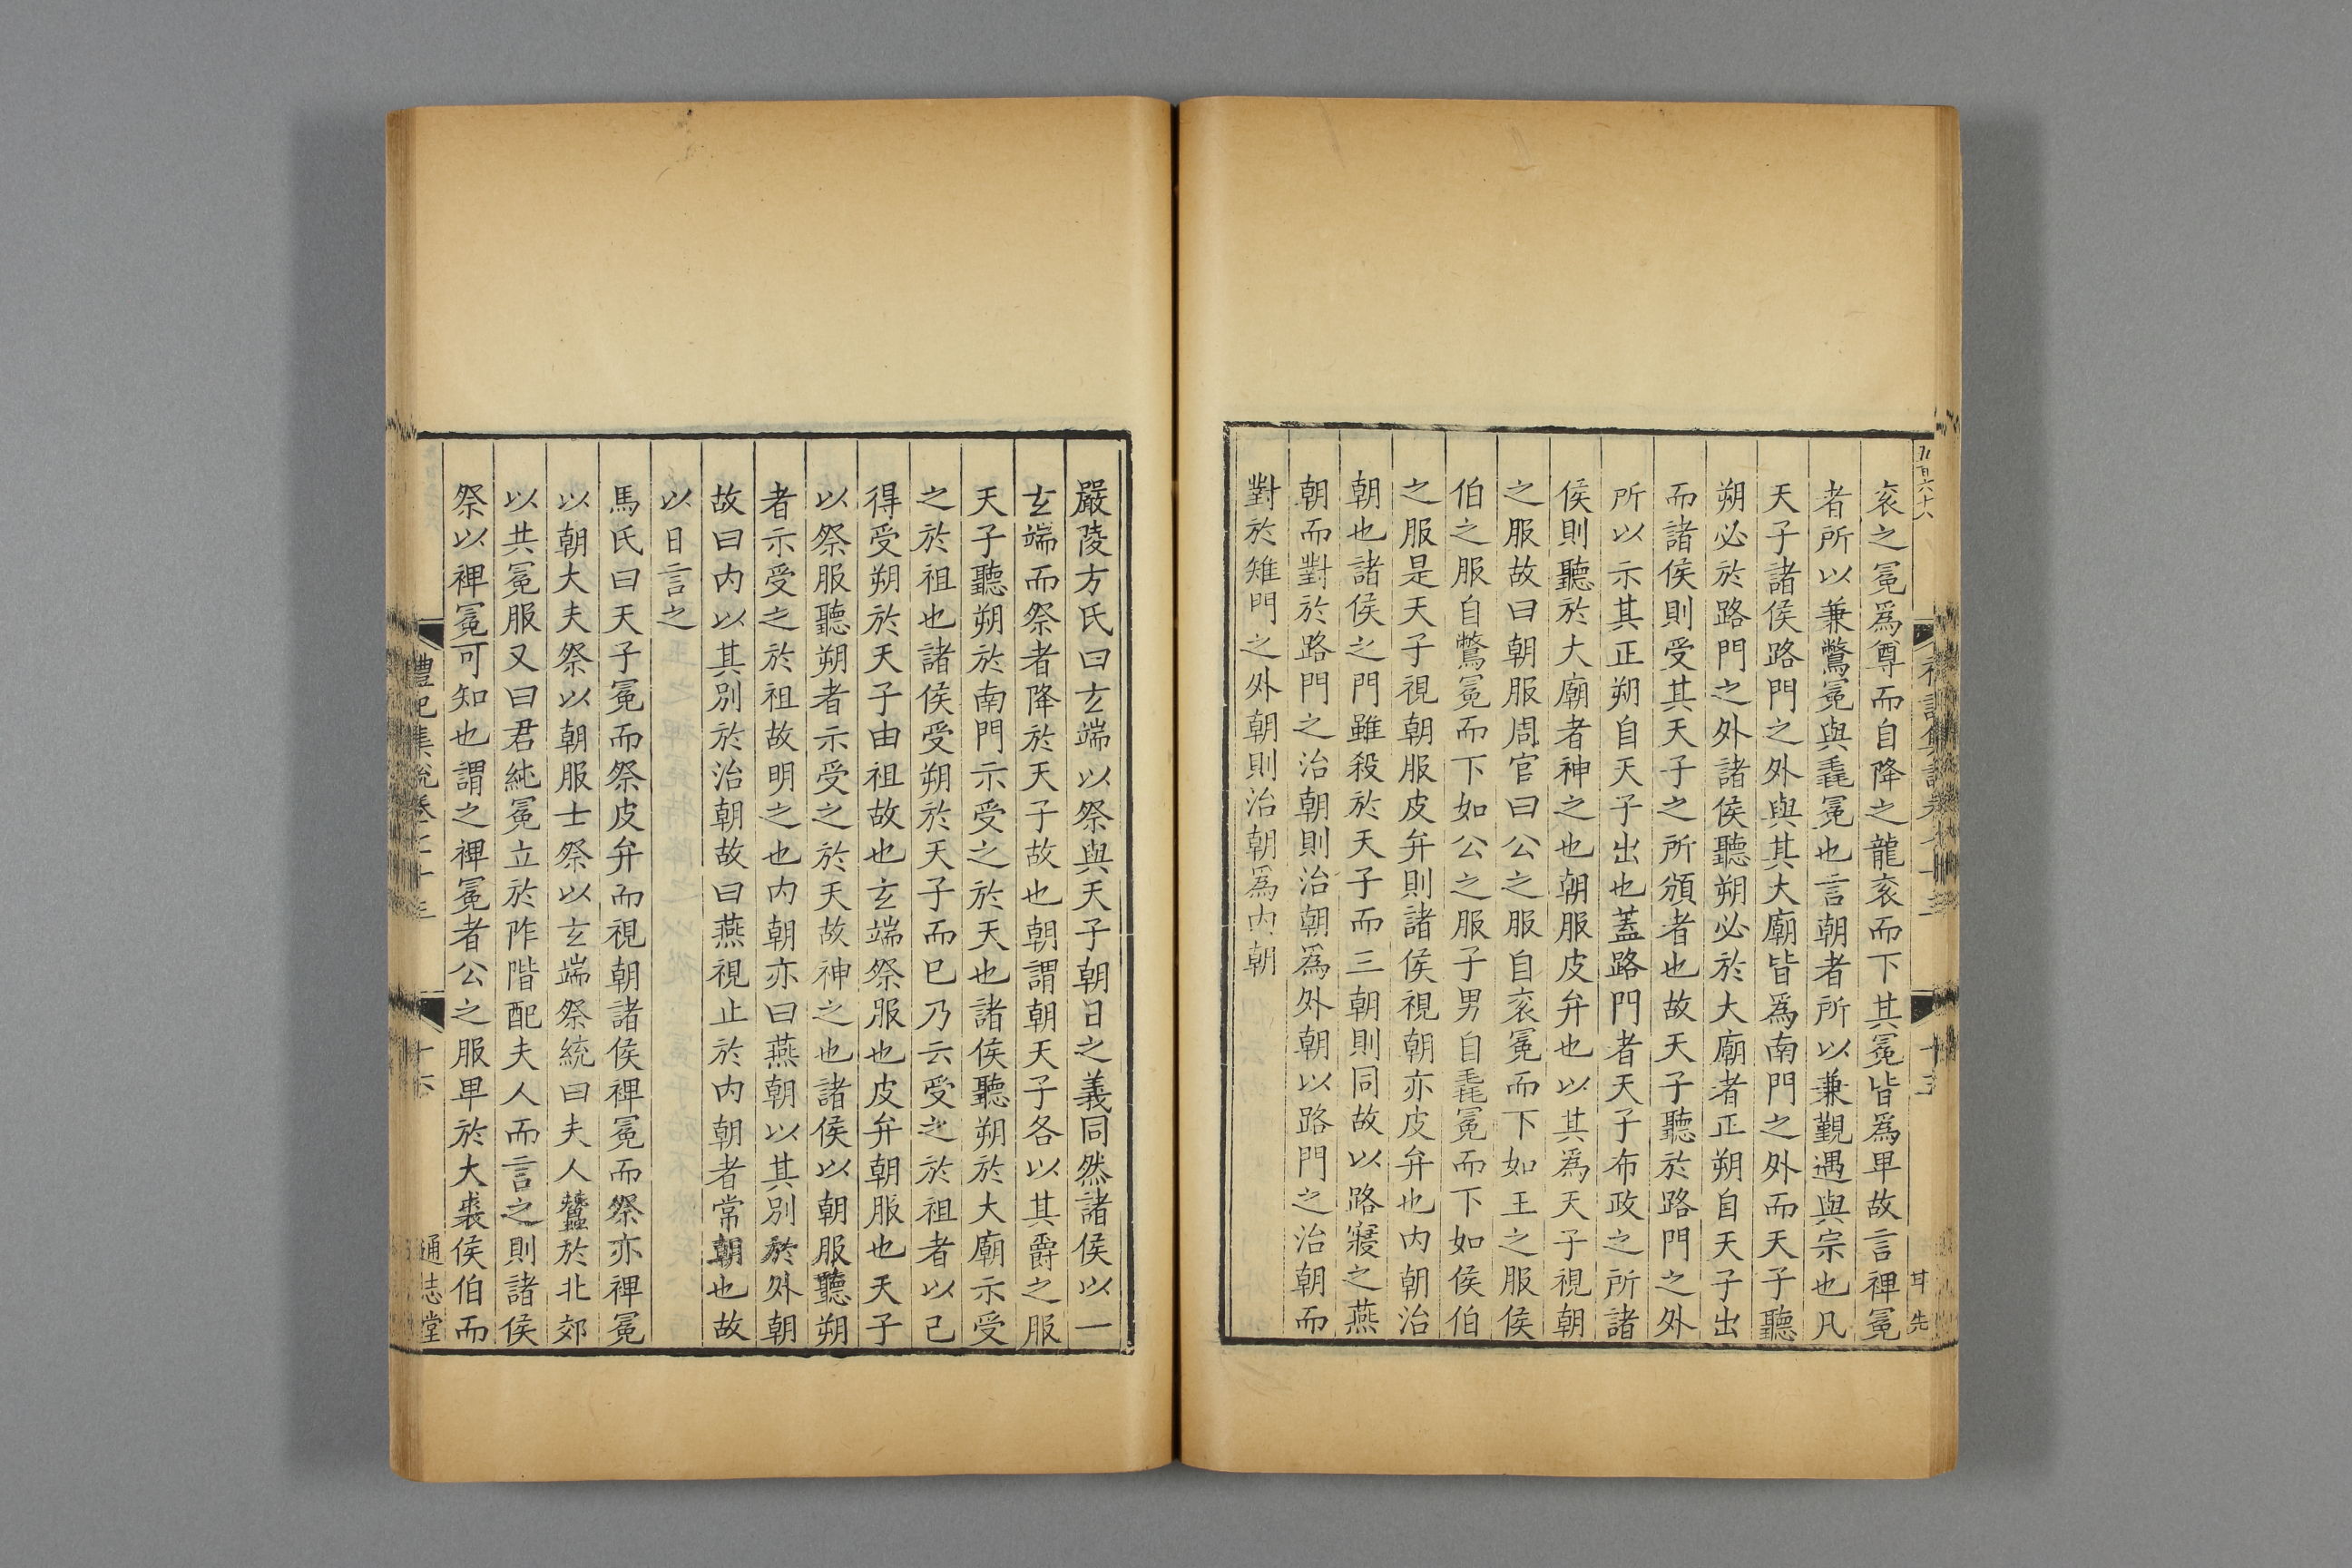 衮之冕爲尊而自降之龍衮而下其冕皆爲卑故言裨冕
者所以兼鷩冕與毳冕也言朝者所以兼覲遇與宗也凡
天子諸侯路門之外與其大廟皆爲南門之外而天子聽
朔必於路門之外諸侯聽朔必於大廟者正朔自天子出
而諸侯則受其天子之所頒者也故天子聽於路門之外
所以示其正朔自天子出也蓋路門者天子布政之所諸
侯則聽於大廟者神之也朝服皮弁也以其爲天子視朝
之服故曰朝服周官曰公之服自衮冕而下如王之服侯
伯之服自鷩冕而下如公之服子男自毳冕而下如侯伯
之服是天子視朝服皮弁則諸侯視朝亦皮弁也内朝治
朝也諸侯之門雖殺於天子而三朝則同故以路寢之燕
朝而對於路門之治朝則治朝爲外朝以路門之治朝而
對於雉門之外朝則治朝爲内朝
嚴陵方氏曰玄端以祭與天子朝日之義同然諸侯以一
玄端而祭者降於天子故也朝謂朝天子各以其爵之服
天子聽朔於南門示受之於天也諸侯聽朔於大廟示受
之於祖也諸侯受朔於天子而巳乃云受之於祖者以己
得受朔於天子由祖故也玄端祭服也皮弁朝服也天子
以祭服聽朔者示受之於天故神之也諸侯以朝服聽朔
者示受之於祖故明之也内朝亦曰燕朝以其別於外朝
故曰内以其別於治朝故曰燕視止於内朝者常朝也故
以日言之
馬氏曰天子冕而祭皮弁而視朝諸侯裨冕而祭亦裨冕
以朝大夫祭以朝服士祭以玄端祭統曰夫人蠶於北郊
以共冕服又曰君純冕立於阼階配夫人而言之則諸侯
祭以裨冕可知也謂之裨冕者公之服卑於大裘侯伯而
禮記集說卷七十三
十六
通志堂